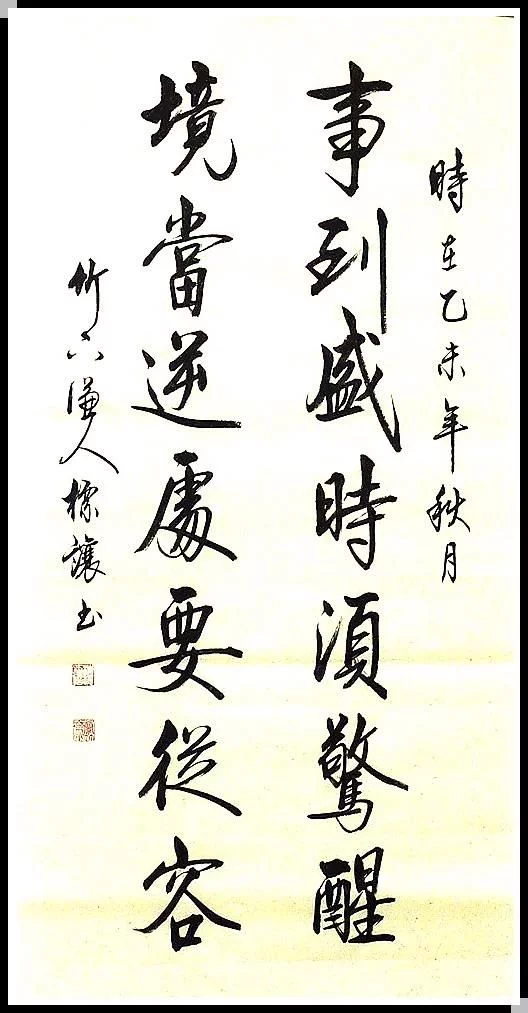 時在乙未年秋月
事到盛時須警醒
境當逆處要從容
竹下漁人標讓书